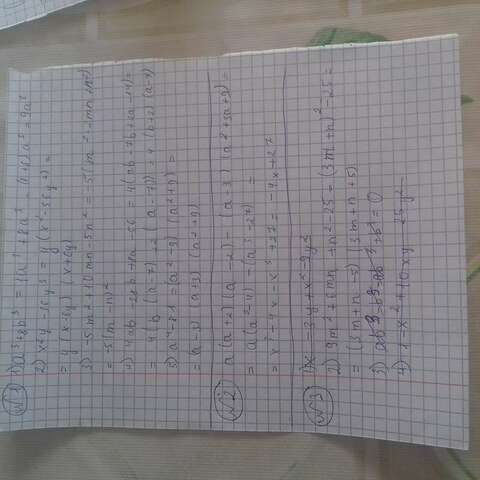 №1 1) a³+8b³ = 1a³ + 8a³ = (1+8)a³ = 9a³
2) x²y - 36y³ = y(x² - 36y²) =
= y(x-6y) (x+6y)
3) -5m²+10mn-5n² = -5(m²-2mn+n²)
= -5(m-n)²
4) 4ab - 28b + 8a - 56 = 4(ab - 7b + 2a - 14) =
= 4(b (a-7) + 2 (a-7)) = 4 (b+2) (a-7)
5) a⁴-81 = (a²-9) (a²+9) =
= (a-3) (a+3) (a²+9)
№2 a(a+2) (a-2) - (a-3) (a²+3a+9) =
= a(a²-4) - (a³-27) =
= x³ - 4x - x³ + 27 = -4x+27
№3 1) x - 3y + x² - 9y²
2) 9m² + 6mn + n² - 25 = (3m+n)² - 25 =
= (3m+n-5) (3m+n+5)
3) = 0
4) 1 - x² + 10xy - 25y²